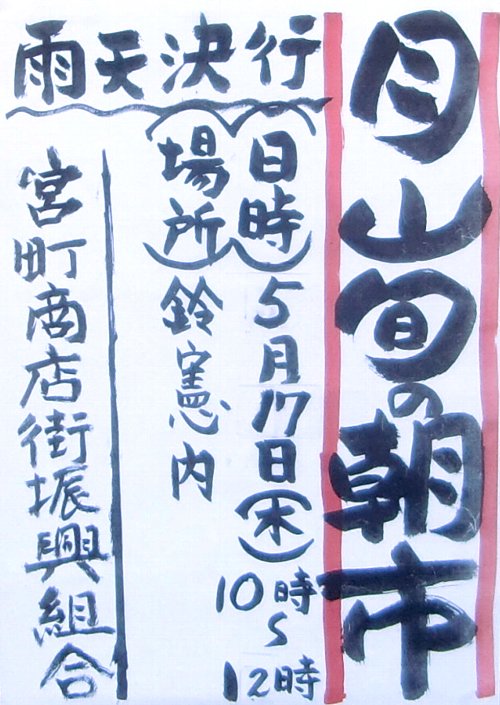 月山旬の朝市
(日時)5月17日(木)
10時~12時
(場所)鈴憲内
雨天決行
宮町商店街振興組合